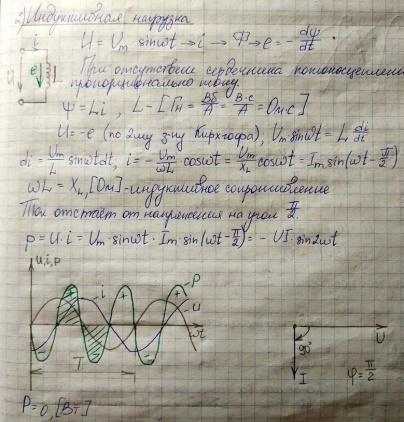 2) Индуктивная нагрузка
i
U = Um sinωt → i → Ф → e = - dψ/dt
U e L
При отсутствие сердечника потокосцепление
пропорционально току.
Ψ = Li, L - [Гн = Вб/А = В·с/А = Ом·с]
U = -e (по 2му з-ну Кирхгофа), Um sinωt = L di/dt
di = Um/L sinωt dt, i = - Um/ωL cosωt = Um/XL cosωt = Im sin(ωt - π/2)
ωL = XL, [Ом] - индуктивное сопротивление
Ток отстаёт от напряжения на угол π/2.
p = U·i = Um·sinωt · Im·sin(ωt - π/2) = - UI·sin2ωt
U, i, p
+ i + + p
U
ωt
- -
T
U
90°
I
φ = π/2
P = 0, [Вт]